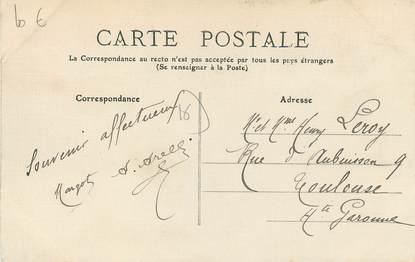 6 €
CARTE POSTALE
La Correspondance au recto n'est pas acceptée par tous les pays étrangers
(Se renseigner à la Poste)
Correspondance
Souvenir affectueux
Margot
Adresse
Mr et Mme Henry Leroy
Rue d'Aubuisson 9
Toulouse
Hte Garonne